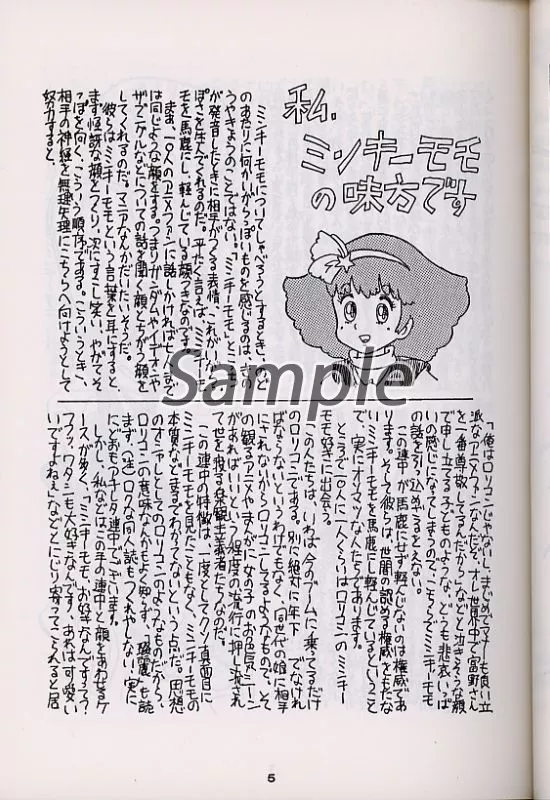 私、
ミンキーモモ
の味方です
ミンキーモモについてしゃべろうとするとき、のど
のあたりに何かいがらっぽいものを感じるのは、きの
うやきょうのことではない。「ミンキーモモ」とこちら
が発音したときに相手がつくる表情、これがいがらっ
ぽさを生んでくれるのだ。平たく言えば、ミンキーモ
モを馬鹿にし、軽んじている顔つきなのです。
まあ、一〇人のアニメファンに話しかければ七人まで
は同じような顔をする。つまりガンダムやイデオンや
ザブングルなどについての話を聞く顔とちがう顔を
してくれるのだ。マニアなんかだいたいそうだ。
彼らはミンキーモモという言葉を耳にすると、
まず怪訝な顔をつくり、次にすこし笑い、やがてそ
っぽを向く、こういう順序である。こういうとき、
相手の神経を無理矢理にこちらへ向けようとして
努力すると、
「俺はロリコンじゃないし、まじめでマナーも良い立
派なアニメファンなんだぞ。オレ、世界中で富野さん
を一番尊敬してるんだから」などと泣きそうな顔
で申し立てる子どものような、どうも悲哀っぽ
いの感じになってしまうので、こちらもミンキーモモ
の話を引っ込めざるをえない。
この連中が馬鹿にせず軽んじないのは権威であ
ります。そして彼らは、世間の認める権威をもたな
いミンキーモモを馬鹿にし軽んじているということ
で、実にオソマツな人たちであります。
ところで一〇人に一人くらいはロリコンのミンキー
モモ好きに出会う。
この人たちは、いわば今のブームに乗ってるだけ
のロリコンである。別に絶対に年下でなけれ
ばならないというわけでもなく、「同世代の娘に相手
にされないからロリコンしてるようなもので、そ
の観るアニメやまんがに女の子のお色気シーン
があればいい」という程度の流行に押し流され
て世を渡る楽観主義者たちなのだ。
この連中の特徴は、一度としてクソ真面目に
ミンキーモモを見たこともなく、ミンキーモモの
本質などまるでわかってないという点だ。思想
のマニヤしとしてのロリコンのようなものだから、
ロリコンの意味なんかもよく知らず、『瑠麗』も読
まず、(注)ロクな同人誌もつくれやしない、実に
におもアナしタ連中でございます。
しかし、私などはこの手の連中と顔をあわせるケ
ースが多く、「ミンキーモモ、お好きなんですう?
フフッ、ワタシも大好きなんです、あれは可愛い
いですよねえ」などとにじり寄ってこられると居
5
Sample